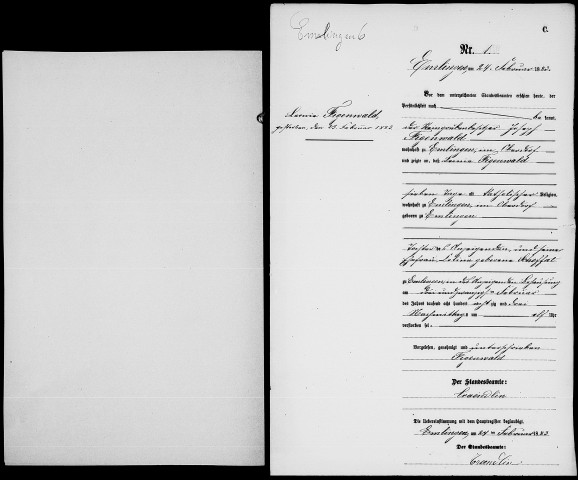 Emlingen 6
C.
Nr. 1
Emlingen am 24. Februar 1883.
Vor dem unterzeichneten Standesbeamten erschien heute, der
Persönlichkeit nach
be kannt,
der Joseph
Figenwald
wohnhaft zu Emlingen, im Oberdorf
und zeigte an, daß Figenwald
Figenwald,
gestorben, den 23. Februar 1883
sieben Tage alt, katholischer Religion,
wohnhaft zu Emlingen, im Oberdorf
geboren zu Emlingen
Tochter des Anzeigenden, und seiner
Ehefrau geborene
zu Emlingen, in des Anzeigenden Behausung
am drei und zwanzigsten Februar
des Jahres tausend acht hundert acht zig und drei
Nachmittags um elf Uhr
verstorben sei.
Vorgelesen, genehmigt und unterschrieben
Figenwald
Der Standesbeamte:
Traendlin
Die Uebereinstimmung mit dem Hauptregister beglaubigt.
Emlingen, am 24. ten Februar 1883.
Der Standesbeamte:
Traendlin